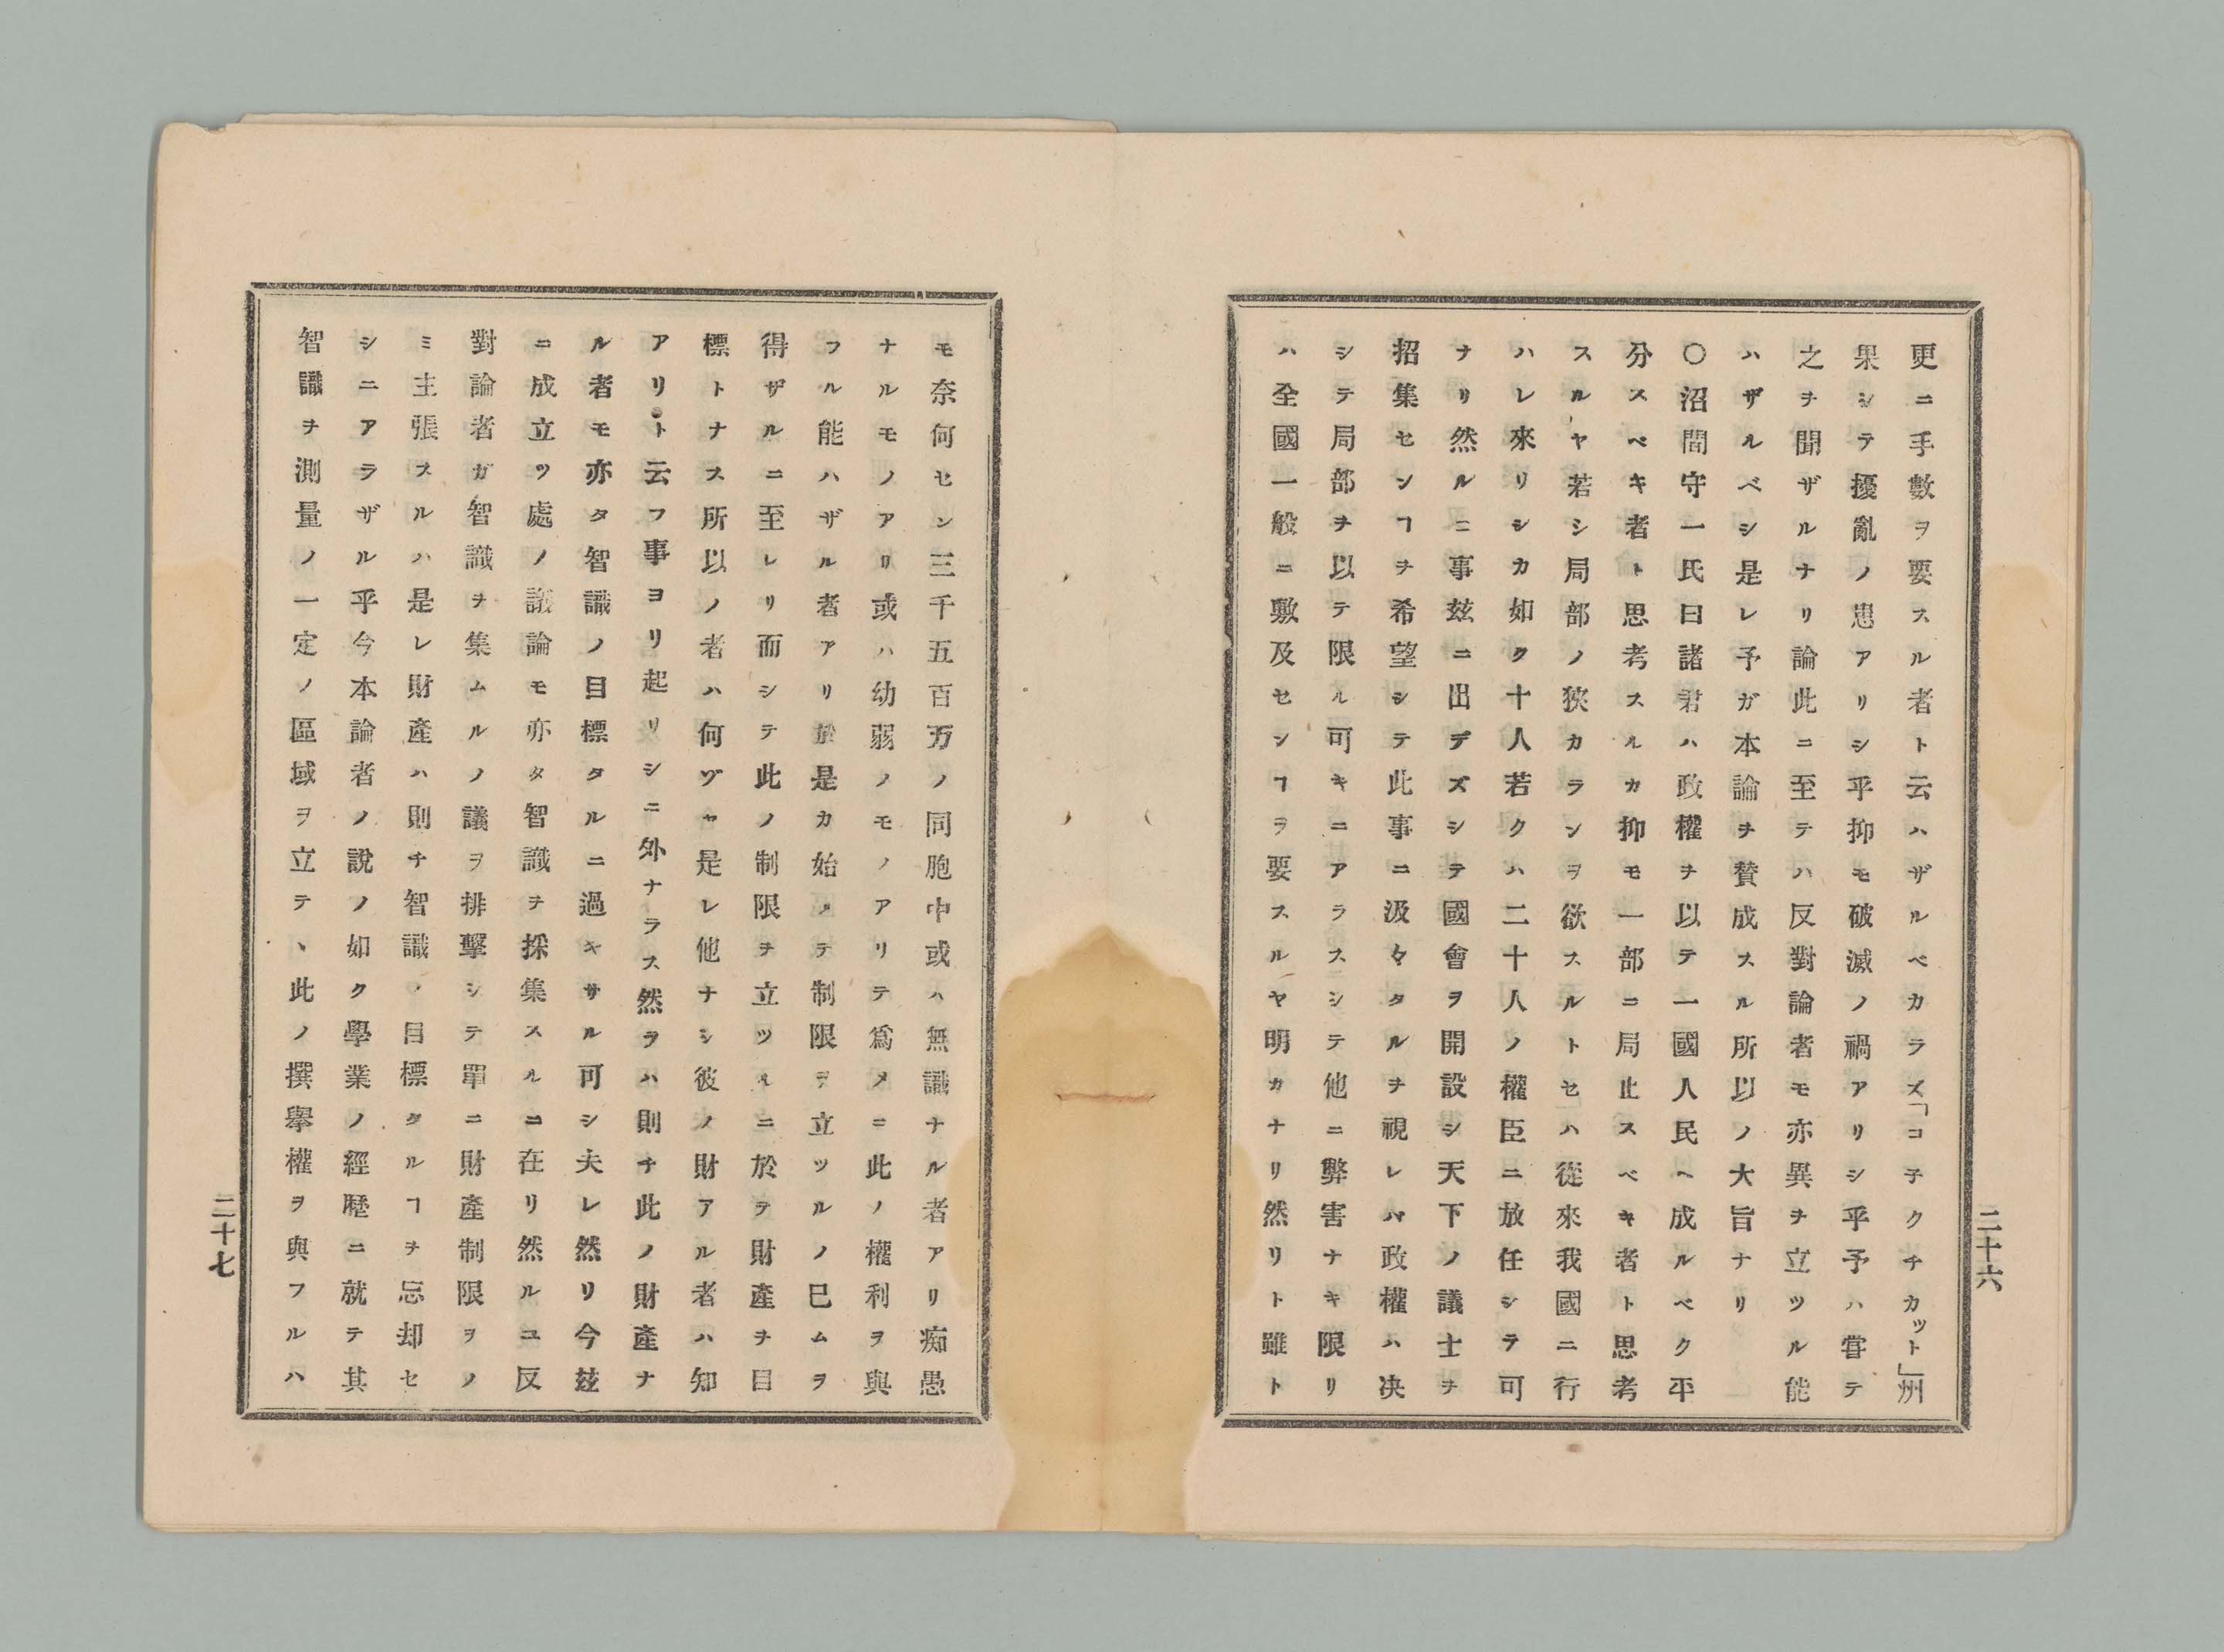 更ニ手數ヲ要スル者ト云ハザルベカラズ「コチクチカット」州
果シテ擾亂ノ患アリシ乎抑モ破滅ノ禍アリシ乎予ハ甞テ
之ヲ聞ザルナリ論此ニ至テハ反對論者モ亦異ヲ立ツル能
ハザルベシ是レ予ガ本論ヲ賛成スル所以ノ大旨ナリ
〇沼間守一氏曰諸君ハ政權ヲ以テ一國人民ヘ成ルベク平
分スベキ者ト思考スルカ抑モ一部ニ局止スベキ者ト思考
スルヤ若シ局部ノ狹カランヲ欲スルトセハ從來我國ニ行
ハレ來リシカ如ク十人若クハ二十人ノ權臣ニ放任シテ可
ナリ然ルニ事玆ニ出デズシテ國會ヲ開設シ天下ノ議士ヲ
招集センヿヲ希望シテ此事ニ汲々タルヲ視レハ政權ハ决
シテ局部ヲ以テ限ル可キニアラスシテ他ニ弊害ナキ限リ
ハ全國一般ニ敷及センヿヲ要スルヤ明カナリ然リト雖ト
二十六
モ奈何セン三千五百万ノ同胞中或ハ無識ナル者アリ痴愚
ナルモノアリ或ハ幼弱ノモノアリテ爲メニ此ノ權利ヲ與
フル能ハザル者アリ於是カ始メテ制限ヲ立ツルノ已ムヲ
得ザルニ至レリ而シテ此ノ制限ヲ立ツルニ於テ財產ヲ目
標トナス所以ノ者ハ何ヅヤ是レ他ナシ彼ノ財アル者ハ知
アリト云フ事ヨリ起リシニ外ナラス然ラハ則チ此ノ財產ナ
ル者モ亦タ智識ノ目標タルニ過キサル可シ夫レ然リ今玆
ニ成立ツ處ノ議論モ亦タ智識ヲ採集スルニ在リ然ルニ反
對論者ガ智識ヲ集ムルノ議ヲ排擊シテ單ニ財產制限ヲノ
ミ主張スルハ是レ財產ハ則チ智識ノ目標タルヿヲ忘却セ
シニアラザル乎今本論者ノ說ノ如ク學業ノ經歷ニ就テ其
智識ヲ測量ノ一定ノ區域ヲ立テ、此ノ撰擧權ヲ與フルハ
二十七